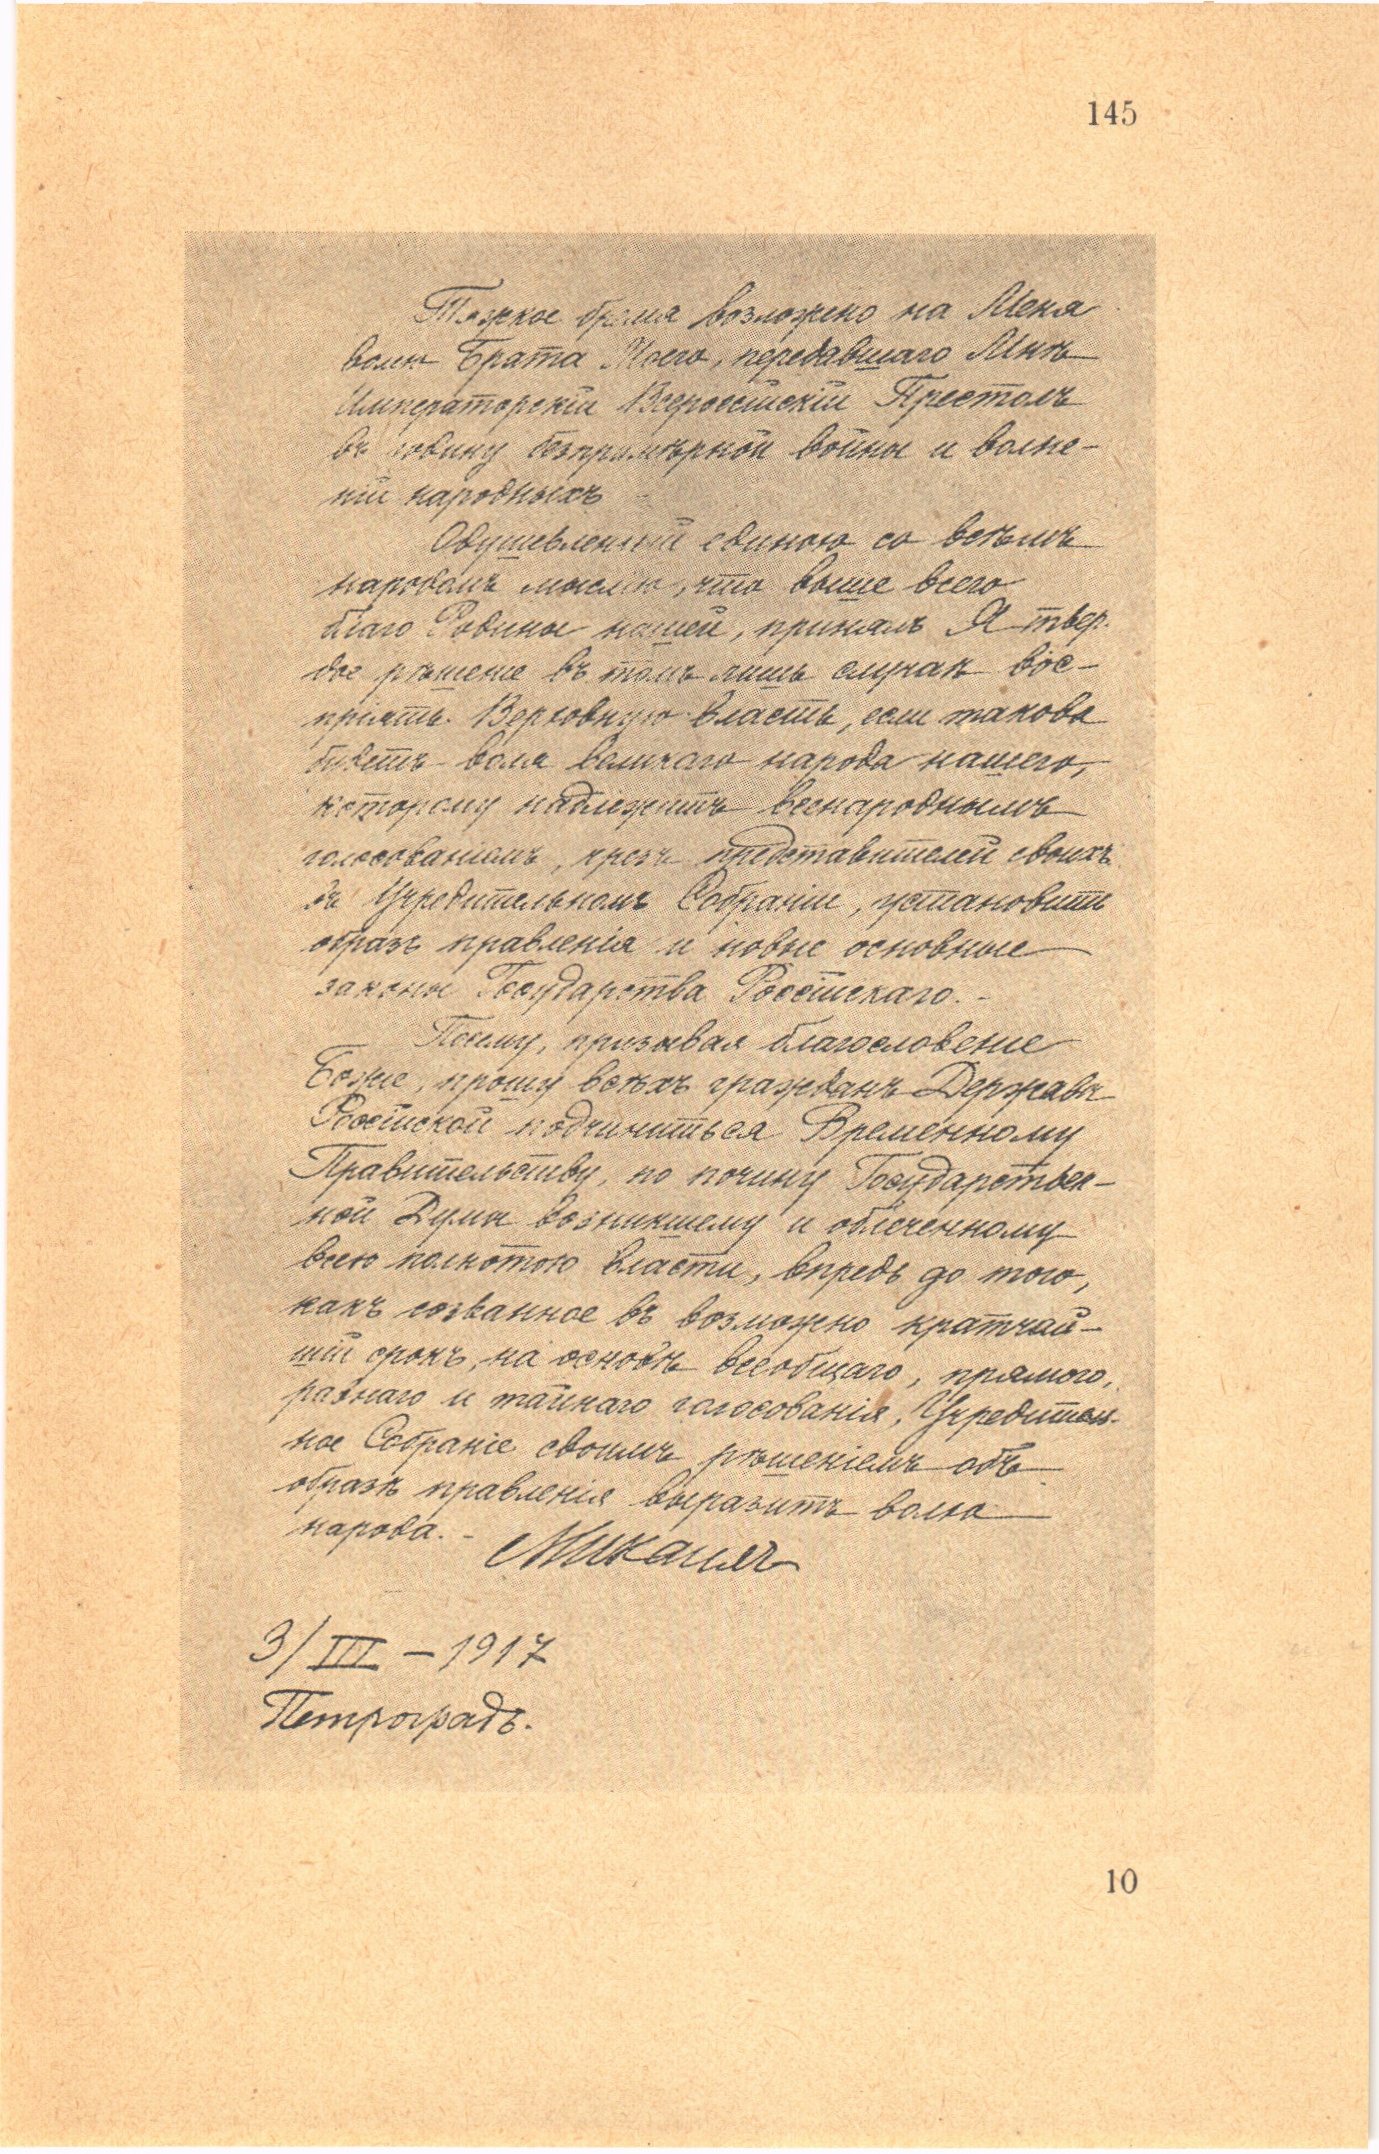 145
Тяжкое бремя возложено на Меня
волею Брата Моего, передавшаго Мнѣ
Императорскій Всероссійскій Престолъ
въ годину безпримѣрной войны и волне-
ній народныхъ
Одушевленный единою со всѣмъ
народомъ мыслію, что выше всего
благо Родины нашей, принялъ Я твер-
дое рѣшеніе въ томъ лишь случаѣ вос-
пріять Верховную власть, если такова
будетъ воля великаго народа нашего,
которому надлежитъ всенароднымъ
голосованіемъ, чрезъ представителей своихъ
въ Учредительномъ Собраніи, установить
образъ правленія и новые основные
законы Государства Россійскаго. -
Посему, призывая благословеніе
Божіе, прошу всѣхъ гражданъ Державы
Россійской подчиниться Временному
Правительству, по почину Государствен-
ной Думы возникшему и облеченному
всею полнотою власти, впредь до того,
какъ созванное въ возможно кратчай-
шій срокъ, на основѣ всеобщаго, прямого,
равнаго и тайнаго голосованія, Учредитель-
ное Собраніе своимъ рѣшеніемъ объ
образѣ правленія выразитъ волю
народа. -
Михаилъ
3/III - 1917
Петроградъ.
10